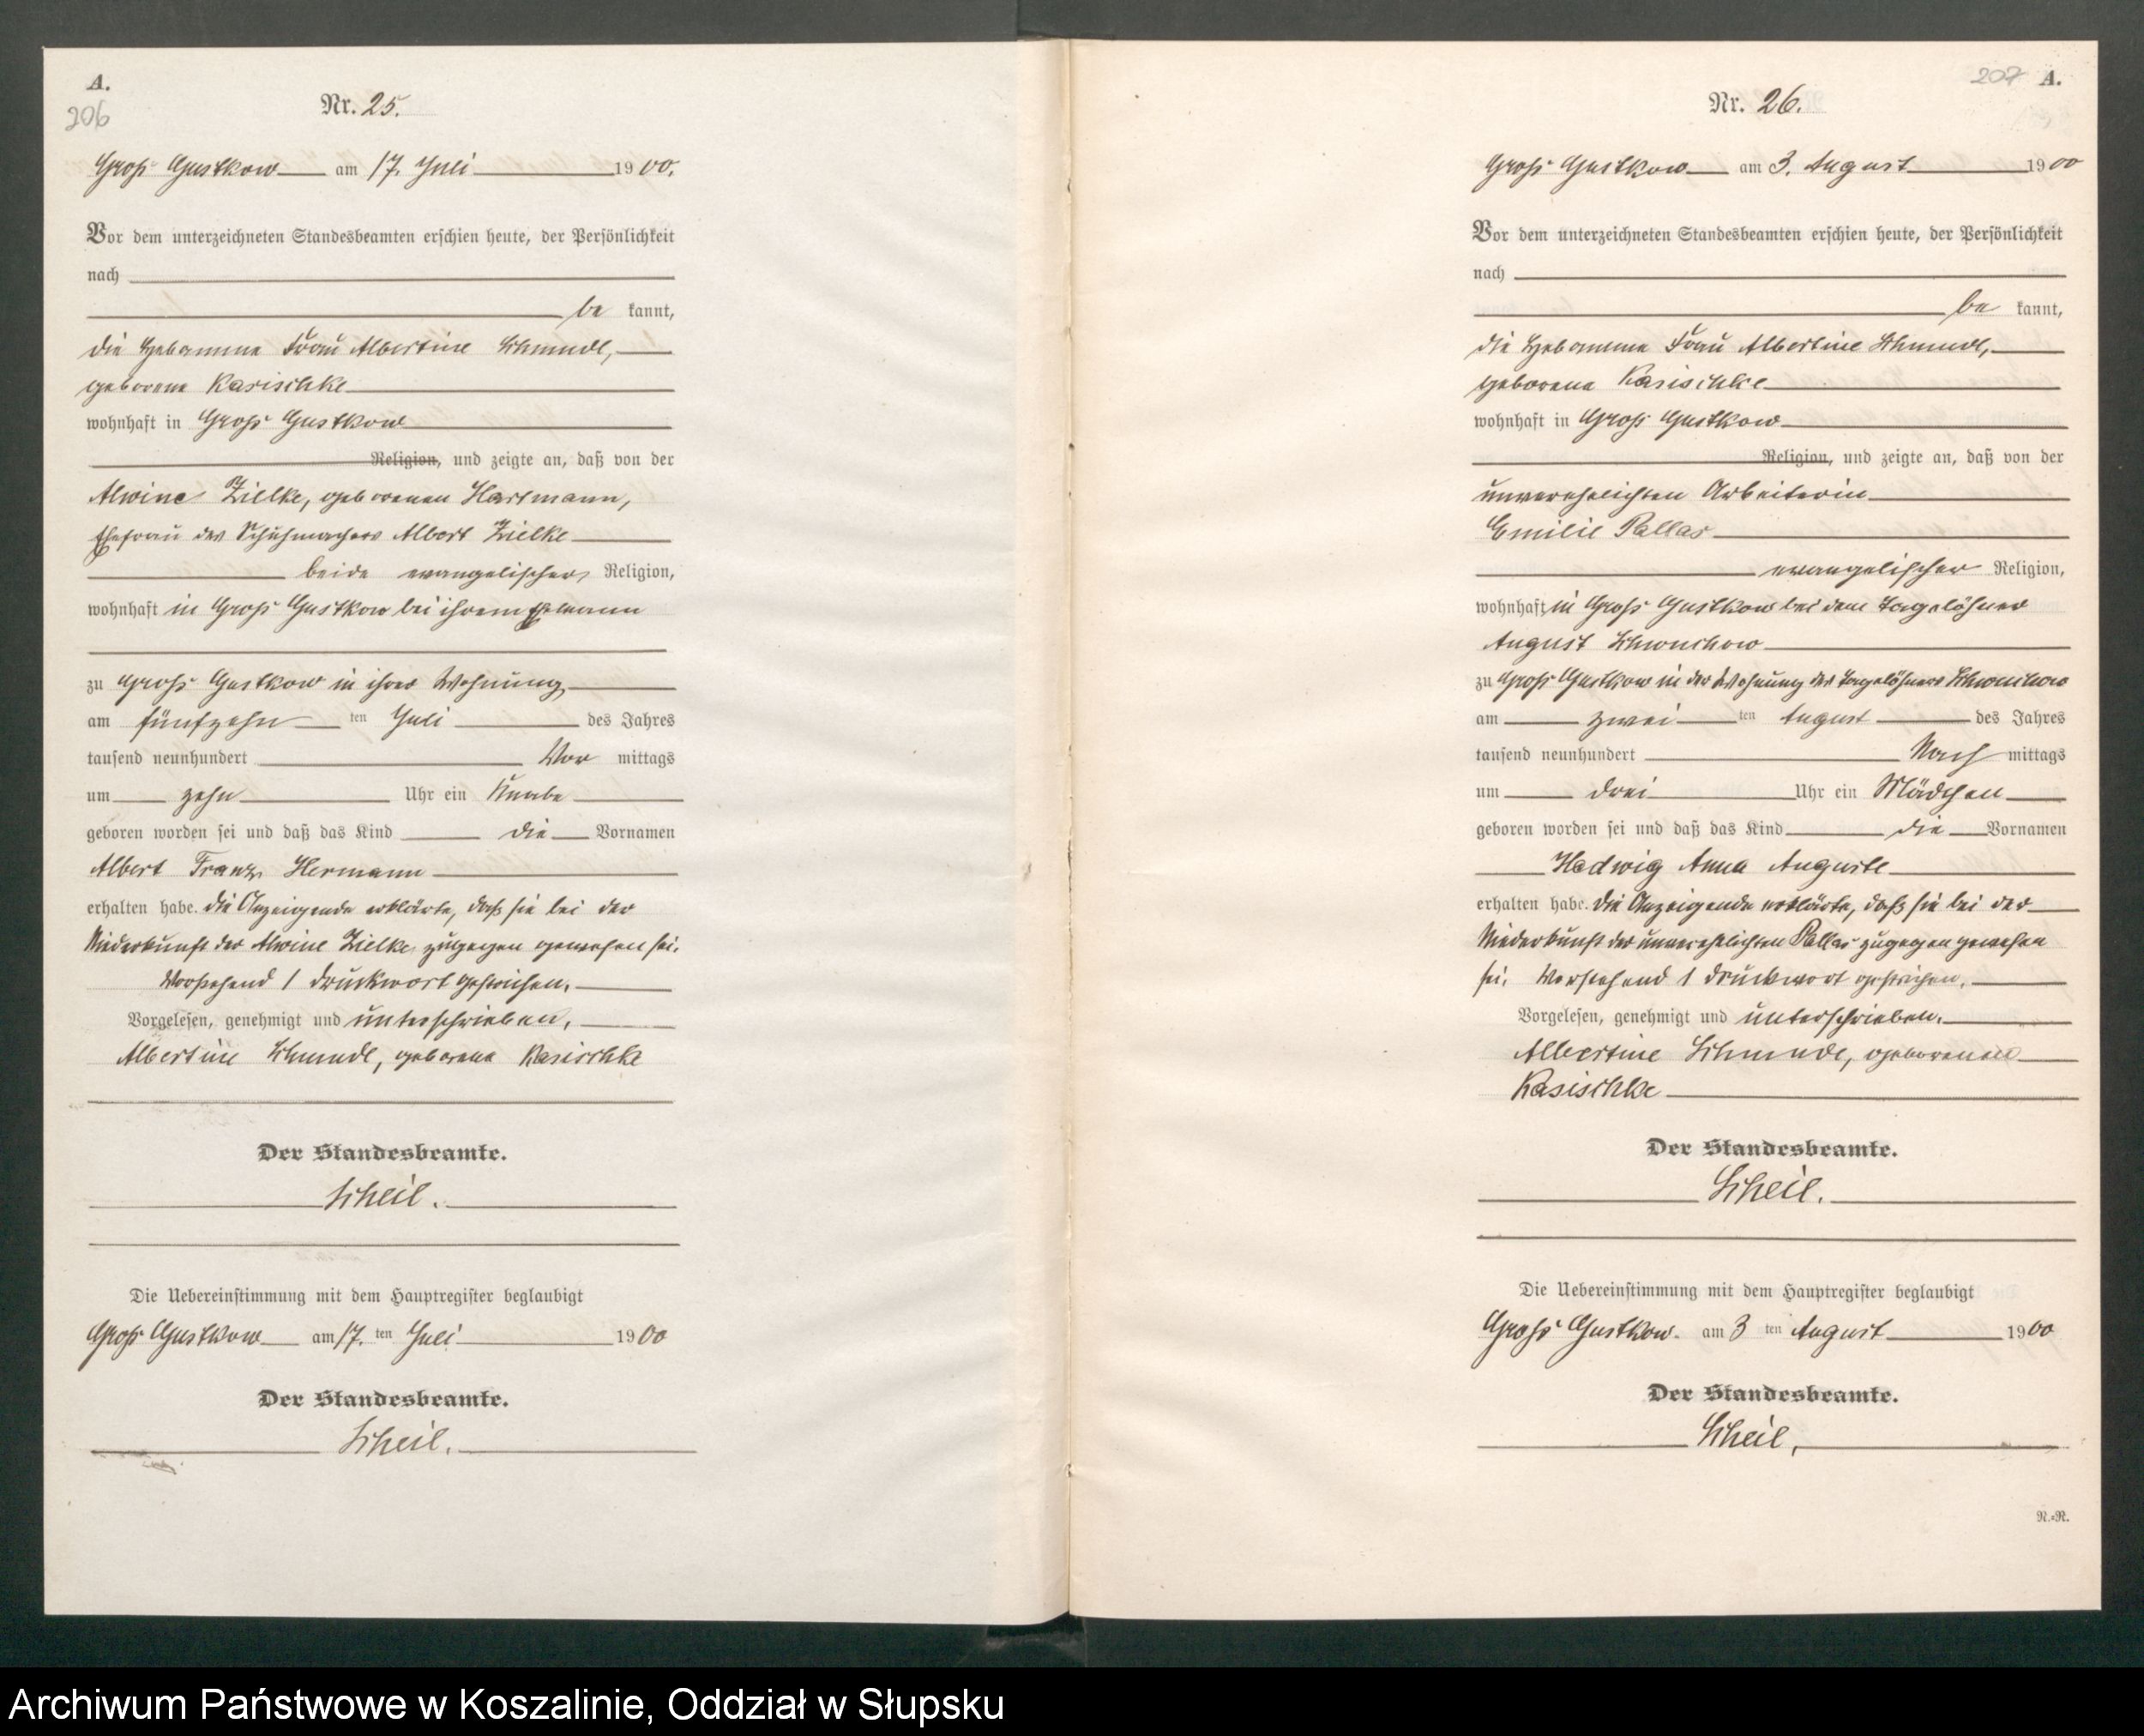 A.
206
Nr. 25.
Groß Gustkow am 17. Juli 1900.
Vor dem unterzeichneten Standesbeamten erschien heute, der Persönlichkeit
nach
be kannt,
die Hebamme Frau Albertine Schmudl,
geborene Kasischke
wohnhaft in Groß Gustkow
Religion, und zeigte an, daß von der
Alwine Zielke, geborenen Hartmann,
Ehefrau des Schuhmachers Albert Zielke
beide evangelischer Religion,
wohnhaft in Groß Gustkow bei ihrem Ehemann
zu Groß Gustkow in ihrer Wohnung
am fünfzehn ten Juli des Jahres
tausend neunhundert Vor mittags
um zehn Uhr ein Knabe
geboren worden sei und daß das Kind die Vornamen
Albert Franz Hermann
erhalten habe. Die Anzeigende erklärte, daß sie bei der
Niederkunft der Alwine Zielke zugegen gewesen sei.
Vorstehend 1 Druckwort gestrichen.
Vorgelesen, genehmigt und unterschrieben.
Albertine Schmudl, geborene Kasischke
Der Standesbeamte.
Scheil.
Die Uebereinstimmung mit dem Hauptregister beglaubigt
Groß Gustkow am 17. ten Juli 1900
Der Standesbeamte.
Scheil.
207 A.
Nr. 26.
Groß Gustkow am 3. August 1900
Vor dem unterzeichneten Standesbeamten erschien heute, der Persönlichkeit
nach
be kannt,
die Hebamme Frau Albertine Schmudl,
geborene Kasischke
wohnhaft in Groß Gustkow
Religion, und zeigte an, daß von der
unverehelichten Arbeiterin
Emilie Pallas
evangelischer Religion,
wohnhaft in Groß Gustkow bei dem Tagelöhner
August
zu Groß Gustkow in der Wohnung des Tagelöhners
am zwei ten August des Jahres
tausend neunhundert Nach mittags
um drei Uhr ein Mädchen
geboren worden sei und daß das Kind die Vornamen
Hedwig Anna Auguste
erhalten habe. Die Anzeigende erklärte, daß sie bei der
Niederkunft der unverehelichten Pallas zugegen gewesen
sei. Vorstehend 1 Druckwort gestrichen.
Vorgelesen, genehmigt und unterschrieben.
Albertine Schmudl, geborenen
Kasischke
Der Standesbeamte.
Scheil.
Die Uebereinstimmung mit dem Hauptregister beglaubigt
Groß Gustkow. am 3 ten August 1900
Der Standesbeamte.
Scheil.
N.-R.
Archiwum Państwowe w Koszalinie, Oddział w Słupsku